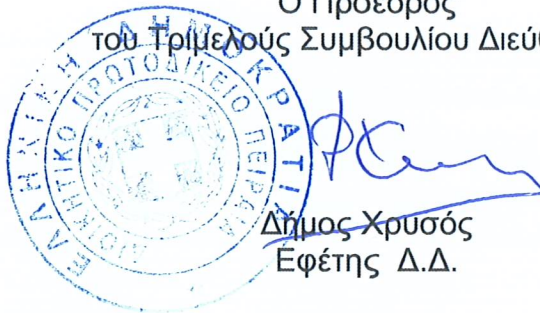 Ο Πρόεδρος
του Τριμελούς Συμβουλίου Διεύθ
ΕΛΛΗΝΙΚΗ ΔΗΜΟΚΡΑΤΙΑ
ΔΙΟΙΚΗΤΙΚΟ ΠΡΩΤΟΔΙΚΕΙΟ ΠΕΙΡΑΙΑ
Δήμος Χρυσός
Εφέτης Δ.Δ.